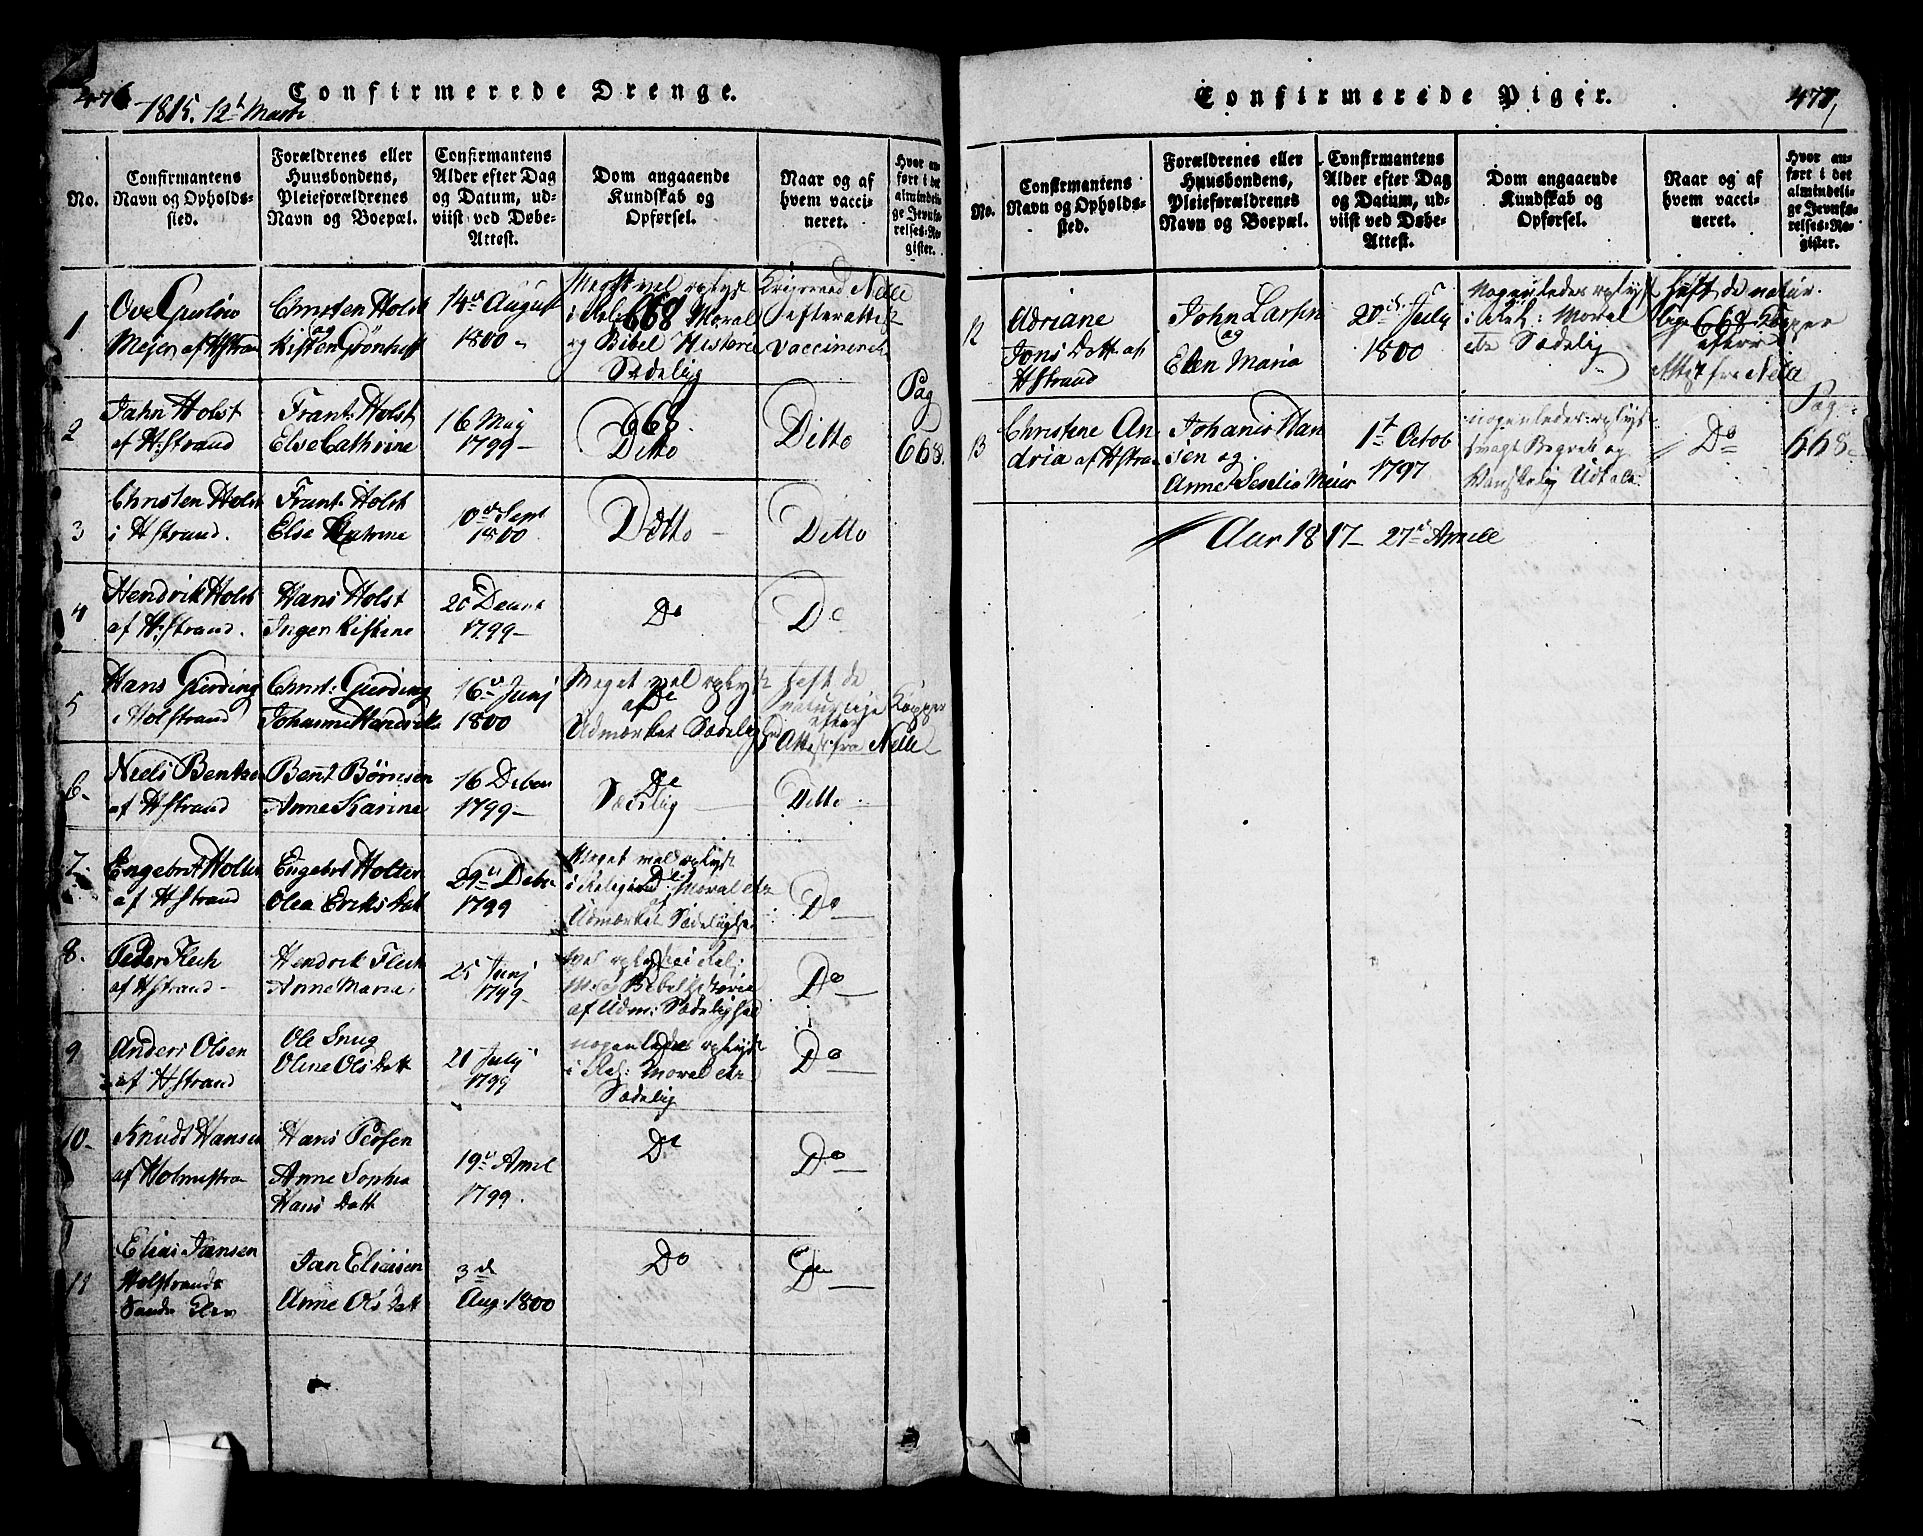 476
Confirmerede Drenge.
1815. 12t Marti
No.
Confirmantens
Navn og Opholds-
sted.
Forældrenes eller
Huusbondens,
Pleieforældrenes
Navn og Boepæl.
Confirmantens
Alder efter Dag
og Datum, ud-
viist ved Døbe-
Attest.
Dom angaaende
Kundskab og
Opførsel.
Naar og af
hvem vacci-
neret.
Hvor an-
ført i det
almindeli-
ge Jevnfø-
relses-Re-
gister.
1
Ove
Mejer af HStran
Christen Holst
og
14de August
1800
Meget vel oplyst
i Rel 668 Moral
og Bibel Historie
Sædelig
Nelle
efter attest
vaccineret
2
Jahn Holst
af H:strand
Frant: Holst
Else Cathrine
16 May
1799-
668.
Ditto
Ditto
Pag
668.
3
Christen Holst
i HStrand.
Frant: Holst
Else Catrine
10de Sept
1800
Ditto
Ditto
4
Hendrik Holst
af H:Strand.
Hans Holst
Inger Kistine
20 Decmt
1799-
Do
Do
5
Hans Gierding
Holstrand
Christ: Gierding
Johanne Hendrik
16de Junj
1800
Meget vel oplyst
af Do
Udmærket Sædelig
haft de
naturlige Kopper
efter
Attest fra Nelle
6-
Niels Bentsen
af HStrand
Bennt Børnsen
Anne Karine
16 Deber
1799-
Do
Sædelig
Ditto
7.
Engebret Holter
af HStrand
Engebret Holter
Olea Eriks Datt
29de Debr
1799
Meget vel oplyst
i Religion Moral etc
af
Udmærket Sædelighed
Do
8.
Peder Flech
af HStrand-
Hendrik Flech
Anne Maria
25 Junj
1799-
Vel oplyst i Rel:
Bibelhistorie
af Udm: Sædelighed
Do
9
Anders Olsen
af HStrand
Ole Snug
Oline Ols Datt
21 Julj
1799
nogenledes oplyst
i Rel: Moral etc
Sædelig
Do
10-
Knudt Hansen
af Holmestra
Hans Persen
Anne Sophia
Hans Datt
19de Aprel
1799.
Do
Do
11
Elias Jansen
Holstrands
Jan Eliasen
Anne Ols Datt
3de
Aug. 1800
Do
Do
Confirmerede Piger.
477,
No.
Confirmantens
Navn og Opholds-
sted.
Forældrenes eller
Huusbondens,
Pleieforældrenes
Navn og Boepæl.
Confirmantens
Alder efter Dag
og Datum, ud-
viist ved Døbe-
Attest.
Dom angaaende
Kundskab og
Opførsel.
Naar og af
hvem vacci-
neret.
Hvor an-
ført i det
almindeli-
ge Jevnfø-
relses-Re-
gister.
12
Adriane
Jons Datt af
HStrand
John Larsen
og
Elen Maria
20de July
1800
Nogenledes oplyst
i Rel: Moral
etc Sædelig
haft de natur-
lige 668 Kopper
efter
Attest fra Nelle
13
Christene An
dria af HStran
Johanes Han
sen og
Anne Meier
1t Octob
1797
nogenledes oplyst
svagt Begreb og
Vanskelig Udtale
Do
Pag
668
Aar 1817- 27de Aprill